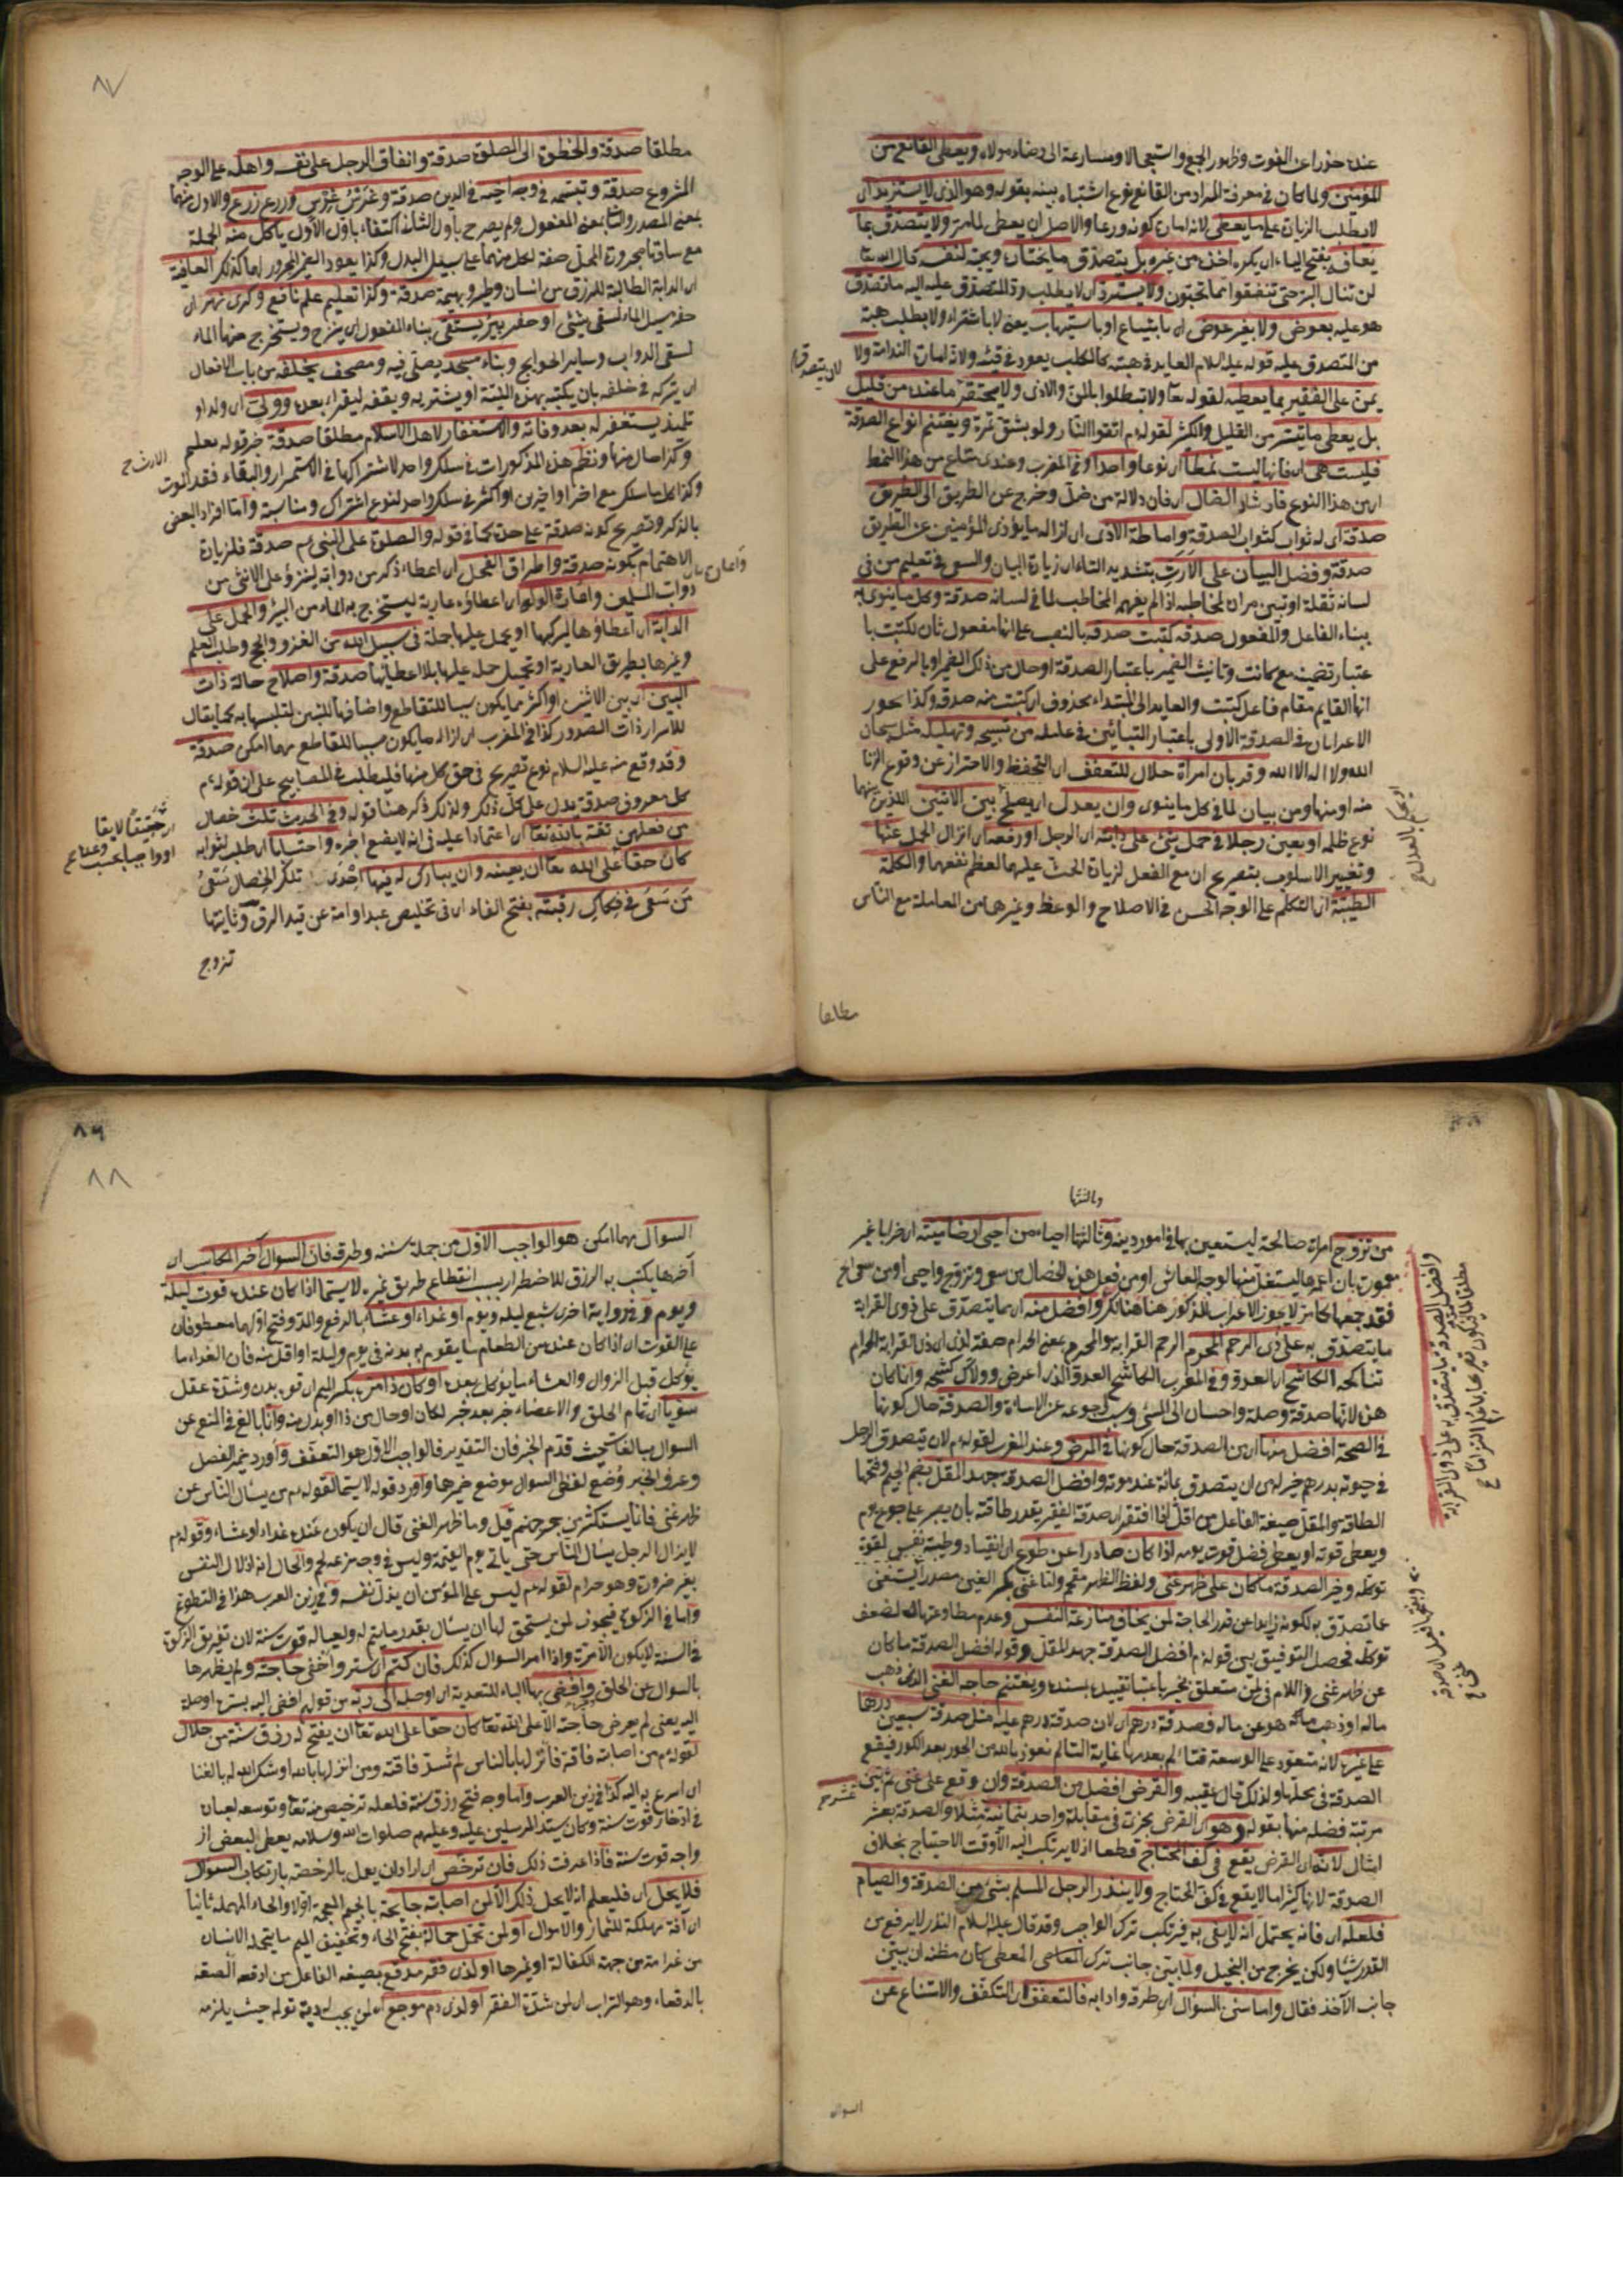 عنده حذرا عن الفوت وظهور الجوع واستعجالا ومسارعة الى رضاء مولاه ويعطى القانع من
المؤمنين ولما كان فى معرفة المراد من القانع نوع اشتباه بينه بقوله وهو الذى لا يستزيد اى
لا يطلب الزيادة على ما يعطى لانه امارة كونه ورعا والاصل ان يعطى لمثله ولا يتصدق بما
تعافه بفتح التاء اى يكره اخذه من غيره بل يتصدق ما يختاره ويحبه لنفسه قال الله تعا
لن تنالوا البر حتى تنفقوا مما تحبون ولا يسترد اى لا يطلب رد المتصدق عليه اليه ما تصدق
هو عليه بعوض ولا بغير عوض اى بابتياع او باستيهاب يعنى لا باشتراء ولا بطلب هبة
من المتصدق عليه قوله عليه السلام العايد فى هبته كالكلب يعود فى قيئه ولانه امارة الندامة ولا
لان يتصدق
يمن على الفقير بما يعطيه لقوله تعا ولا تبطلوا بالمن والاذى ولا يحتقر ما عنده من قليل
بل يعطى ما تيسر من القليل والكثير لقوله م اتقوا النار ولو بشق تمرة ويغتنم انواع الصدقة
فليست هى اى فانها ليست نمطا اى نوعا واحدا وفى المغرب وعندى متاع من هذا النمط
اى من هذا النوع فارشاد الضال اى فان دلالة من ضل وخرج عن الطريق الى الطريق
صدقة اى له ثواب كثواب الصدقة واماطة الاذى اى ازالة ما يؤذى المؤمنين عن الطريق
صدقة وفضل البيان على الارت بتشديد التاء اى زيادة البيان والسعى فى تعليم من فى
لسانه ثقلة او تبيين مراده لمخاطبه اذا لم يفهم المخاطب لما فى لسانه صدقة وكل ما ينوى به
ببناء الفاعل والمفعول صدقة كتبت صدقة بالنصب على انها مفعول ثان لكتبت با
عتبار تضمينه مع كانت وتانيث الضمير باعتبار الصدقة او حال من ذلك الضمير او بالرفع على
انها القايم مقام فاعل كتبت والعايد الى المبتداء محذوف اى كتبت منه صدقة وكذا يجوز
الاعرابان فى الصدقة الاولى باعتبار
الله ولا اله الا الله وقربان امرأة حلال للتعفف اى التحفظ والاحتراز عن وقوع الزنا
منه او منها ومن بيان لما فى كل ما ينوى وان يعدل اى يصلح بين الاثنين الذين بينهما
نوع ظلم او يعين رجلا فى حمل شئ على دابته اى الرجل او رفعه اى انزال الحمل عنها
وتغيير الاسلوب بتصريح ان مع الفعل لزيادة الحث عليهما لعظم نفعهما والكلمة
الطيبة اى التكلم على الوجه الحسن فى الاصلاح والوعظ وغيرهما من المعاملة مع الناس
مطلقا
٨٧
مطلقا صدقة والخطوة الى الصلوة صدقة وانفاق الرجل على نفسه واهله على الوجه
المشروع صدقة وتبسمه فى وجه اخيه فى الدين صدقة وغرس غرس وزرع زرع والاول منهما
بمعنى المصدر والثانى بمعنى المفعول ولم يصرح باول الثانى اكتفاء باول الاول ياكل منه الجملة
مع ساقتها مجرورة المحل صفة لكل منهما على سبيل البدل وكذا يعود الضمير المجرور لهما كذلك العافية
اى الدابة الطالبة للرزق من انسان وطير وبهيمة صدقة وكذا تعليم علم نافع وكرى نهر اى
حفر سبيل الماء لسقى شئ او حفر بير يستقى ببناء المفعول اى ينزح ويستخرج منها الماء
لسقى الدواب وساير الحوايج وبناء مسجد يصلى فيه ومصحف يخلفه من باب الافعال
اى يتركه فى خلفه بان يكتبه بهذه النية او يشتريه ويقفه ليقراء بعده وولى اى ولد او
تلميذ يستغفر له بعد وفاته والاستغفار لاهل الاسلام مطلقا صدقة خبر قوله تعليم
وكذا حال منها ونظم هذه المذكورات فى سلك واحد لاشتراكها فى الاستمرار والبقاء فقد الموت
وكذا كل ما سلك مع اخر او اخرين او اكثر فى سلك واحد لنوع اشتراك ومناسبة واما افراد البعض
بالذكر وتصريح كونه صدقة على حدة كما فى قوله والصلوة على النبى عم صدقة فلزيادة
الاهتمام بكونه صدقة واطراق الفحل اى اعطاء ذكر من دوابه لينزو على الانثى من
دواب المسلمين واعارة الدلو اى اعطاؤه عارية ليستخرج به الماء من البئر والحمل على
الدابة اى اعطاؤها ليركبها او يحمل عليها حملة فى سبيل الله من الغزو والحج وطلب العلم
وغيرها بطريق العارية او تحميل حمله عليها بلا اعطائها صدقة واصلاح حالة ذات
البين اى بين الاثنين او اكثر مما يكون سببا للتقاطع واضافتها للبين لتلبسها به كما يقال
للاسرار ذات الصدور كذا فى المغرب اى ازالة ما يكون سببا للتقاطع مهما امكن صدقة
وقد وقع منه عليه السلام نوع تصريح فى حق كل منها فليطلب فى المصابيح على ان قوله عم
كل معروف صدقة يدل على كل ذلك ولذلك ذكر هنا قوله وفى الحديث ثلث خصال
من فعلهن ثقة بالله تعا اى اعتمادا عليه فى انه لا يضيع اجره واحتسابا اى طلبا لثوابه
كان حقا على الله تعا ان يعينه وان يبارك له فيها احدى تلك الخصال سعى
من سعى فى فكاك رقبته بفتح الفاء اى فى تخليص عبد او امة عن قيد الرق وثانيتها
تزوج
وثالثتها
من تزوج امرأة صالحة ليستعين بها فى امور دينه وثالثتها احياء من احيى ارضا ميتة اى خرابا غير
فقد جمعها كما ترى لا يجوز الاعراب المذكور هنا هنالك وافضل منه اى مما يتصدق على ذوى القرابة
ما يتصدق به على ذى الرحم المحرم الرحم القرابة والمحرم بمعنى الحرام صفة لذى اى ذى القرابة الحرام
تناكحه الكاشح اى العدو وفى المغرب الكاشح العدو الذى اعرض وولاك كشحه وانما كان
هذه لانها صدقة وصلة واحسان الى المسئ وسبب لرجوعه عن الاساءة والصدقة حال كونها
فى الصحة افضل منها اى من الصدقة حال كونها فى المرض وعند الغرغر لقوله م لان يتصدق الرجل
فى حيوته بدرهم خير له من ان يتصدق بمائة عند موته وافضل الصدقة جهد المقل بضم الجيم وفتحها
الطاقة والمقل صيغة الفاعل من اقل اذا افتقر اى صدقة الفقير بقدر طاقته بان يصبر على جوع يوم
ويعطى قوته او يعطى فضل قوت يومه اذا كان صادرا عن طوع اى انقياد وطيبة نفس لقوة
توكله وخير الصدقة ما كان على ظهر غنى ولفظ الظهر مقحم
عما تصدق به لكونه زايدا عن قدر الحاجة لمن يخاف منازعة النفس وعدم مطاوعتها له لضعف
توكله فحصل التوفيق بين قوله م افضل الصدقة جهد المقل وقوله افضل الصدقة ما كان
عن ظهر غنى واللام فى لمن متعلق بخير باعتبار تقييده بسنده ويغتنم حاجة الغنى الذى ذهب
ماله او ذهب ماله هو عن ماله فصدقة درهم اى لان صدقة درهم عليه مثل صدقة سبعين درهما
على غيره لانه متعود على الوسعة فتألم بعدمها غاية التألم نعوذ بالله من الحور بعد الكور فيقع
الصدقة فى محلها ولذلك قال عقيبه والقرض افضل من الصدقة وان وقع على غنى ثم بين
مرتبة فضله منها بقوله وهو اى القرض يجزى فى مقابلة واحد بثمانية عشر مثلا والصدقة بعشر
امثال لانه اى القرض يقع فى كف المحتاج قطعا اذ لا يرتكب اليه الا وقت الاحتياج بخلاف
الصدقة لانها كثيرا ما لا يقع فى كف المحتاج ولا ينذر الرجل المسلم بشئ من الصدقة والصيام
فلعله اى فانه يحتمل انه لا يفى به فيرتكب ترك الواجب وقد قال عليه السلام النذر لا يرفع من
القدر شيئا ولكن يخرج من البخيل ولما بين جانب المعطى كان مظنة ان يبين
جانب الآخذ فقال واما سنن السؤال اى طرقه وادابه فالتعفف اى التكفف والامتناع عن
السوال
وافضل الصدقة ما يتصدق به على ذوى القرابة
٨٦
٨٨
السوال مهما امكن هو الواجب الاول من جملة سننه وطرقه فان السوال آخر المكاسب اى
آخر ما يكتسب به الرزق للاضطرار بسبب انقطاع طريق غيره لا سيما اذا كان عنده قوت ليلة
ويوم وفى رواية اخرى شبع ليلة ويوم او غداء او عشاء بالرفع والمد وفتح اولهما معطوفان
على القوت اى اذا كان عنده من الطعام ما يقوم به بدنه فى يوم وليلة او اقل منه فان الغداء ما
يؤكل قبل الزوال والعشاء ما يؤكل بعده او كان ذا مرة بكسر الميم اى قوة بدن وشدة عقل
سويا اى تام الخلق والاعضاء خبر بعد خبر لكان او حال من ذا او بدل منه وانما بالغ فى المنع عن
السوال مبالغة حيث قدم الخبر فان التقدير فالواجب الاول هو التعفف واورد ضمير الفصل
وعرف الخبر ووضع لفظ السوال موضع ضميرها واورد قوله لا سيما لقوله م من يسأل الناس عن
ظهر غنى فانما يستكثر من جمر جهنم قيل وما ظهر الغنى قال ان يكون عنده غداء او عشاء وقوله م
لا يزال الرجل يسأل الناس حتى ياتى يوم القيمة وليس فى وجهه مزعة لحم والحال انه اذلال النفس
بغير ضرورة وهو حرام لقوله م ليس على المؤمن ان يذل نفسه وفى زين العرب هذا فى التطوع
واما فى الزكوة فيجوز لمن يستحق لها ان يسأل بقدر ما يتم له ولعياله قوت سنة لان تفريق الزكوة
فى السنة لا يكون الا مرة واذا امر السوال كذلك فان كتم اى ستر واخفى حاجته ولم يظهرها
بالسوال من الخلق وافضى بها الباء للتعدية اى اوصلها الى ربه من قولهم افضى اليه بسره اوصله
اليه يعنى لم يعرض حاجته الا على الله تعا كان حقا على الله تعا ان يفتح له رزق سنة من حلال
لقوله م من اصابته فاقة فانزلها بالناس لم تسد فاقته ومن انزلها بالله اوشك الله له بالغنا
اى اسرع به اليه كذا فى زين العرب واما وجه فتح رزق سنة فلعله ترخيص منه تعا وتوسعة لعباده
فى ادخار قوت سنة وكان سيد المرسلين عليه وعليهم صلوات الله وسلامه يعطى لبعض از
واجه قوت سنة فاذا عرفت ذلك فان ترخص اى اراد ان يعمل بالرخصة بارتكاب السوال
فلا يحل اى فليعلم انه لا يحل ذلك الا لمن اصابته جايحة بالجيم المعجمة اولا والحاء المهملة ثانيا
اى آفة مهلكة للثمار والاموال او لمن تحمل حمالة بفتح الحاء وتخفيف الميم ما يتحمله الانسان
من غرامة من جهة الكفالة او غيرها او لذى فقر مدقع بصيغة الفاعل من ادقعه الصقه
بالدقعاء وهو التراب اى لمن شدة الفقر او لذى دم موجع اى لمن يجب له دية تولم حيث يلزمه